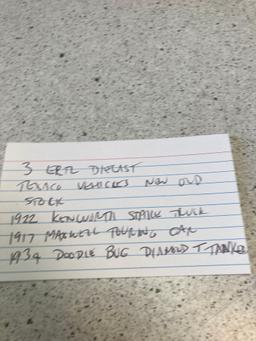 3 ERTL DIECAST
TEXACO VEHICLES NEW OLD
STOCK
1922 KENWORTH STAKE TRUCK
1917 MAXWELL TOURING CAR
1934 DOODLE BUG DIAMOND T TANKER